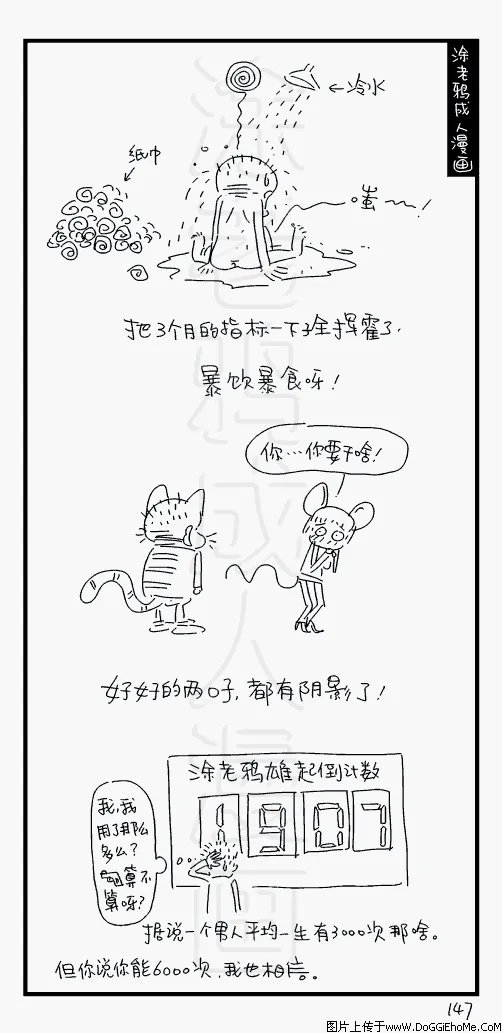 涂老鸦成人漫画
←冷水
纸巾
嗤~~!
把3个月的指标一下子全挥霍了.
暴饮暴食呀!
你…你要干啥!
好好的两口子,都有阴影了!
涂老鸦雄起倒计数
1907
我,我
用了那么
多么?
算不
算呀?
据说一个男人平均一生有3000次那啥。
但你说你能6000次,我也相信。
147
图片上传于www.DoGGiEhoMe.CoM